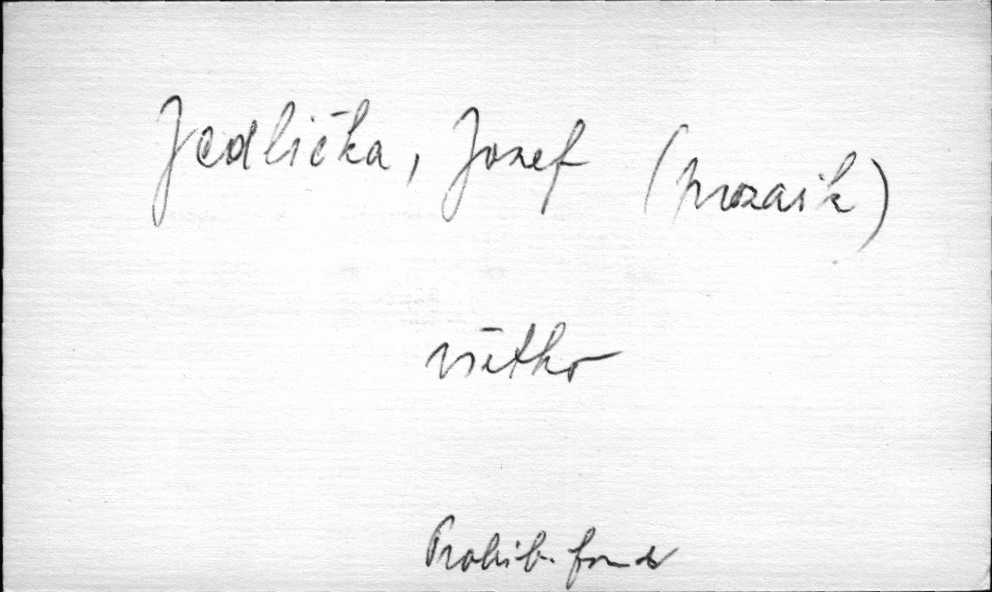 Jedlička, Jozef (prozaik)
všetko
Prohib. fond